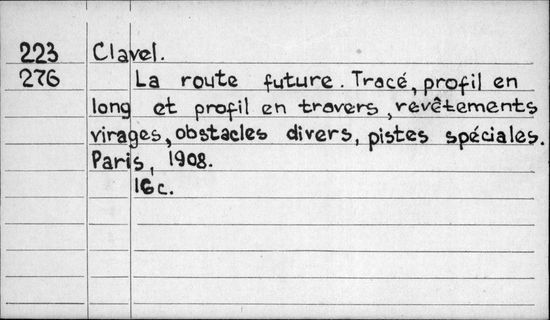 223 Clavel.
276 La route future. Tracé, profil en
long et profil en travers, revêtements
virages, obstacles divers, pistes spéciales.
Paris, 1908.
16c.